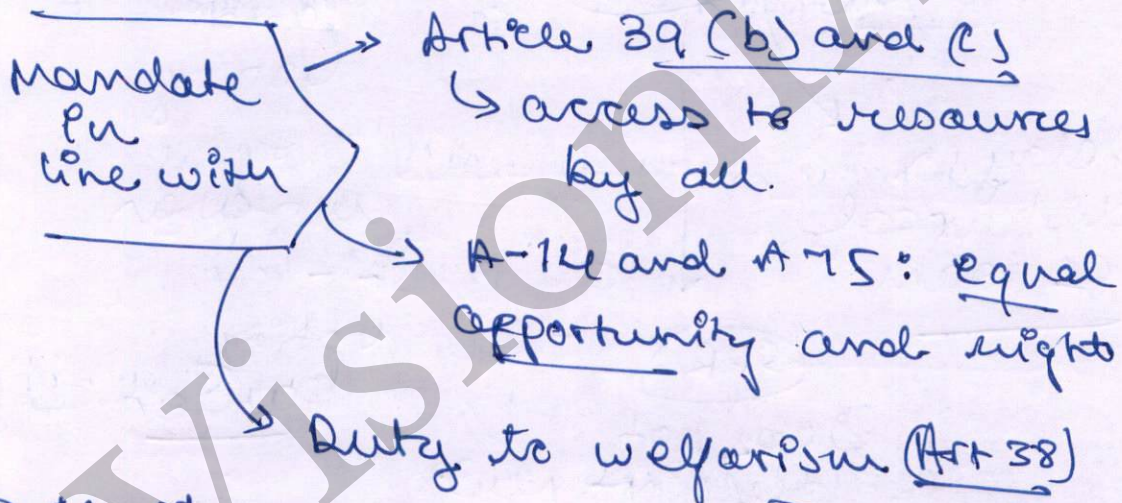 Mandate
in
line with
→ Article 39 (b) and (c)
↳ access to resources
by all.
→ A-14 and A-15: equal
opportunity and rights
→ Duty to welfarism (Art 38)
Vision